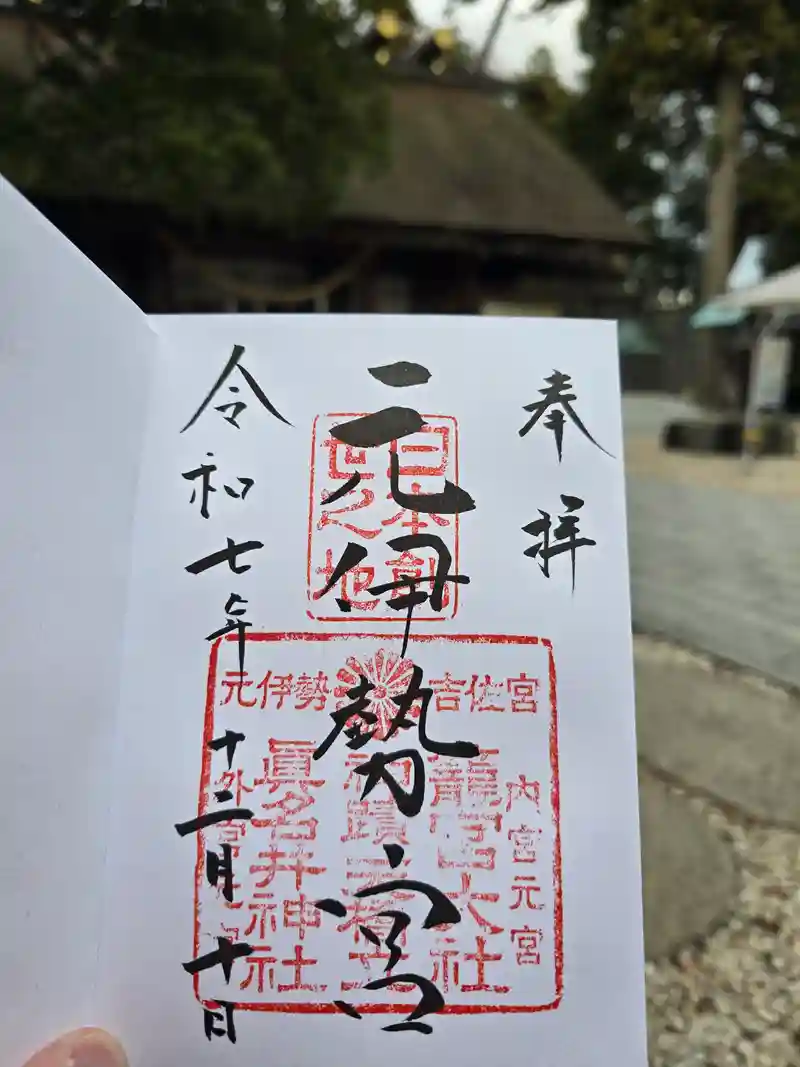 奉拝
元伊勢宮
令和七年十二月十日
日本創
世之地
元伊勢 吉佐宮
内宮元宮
籠宮大社
眞名井神社